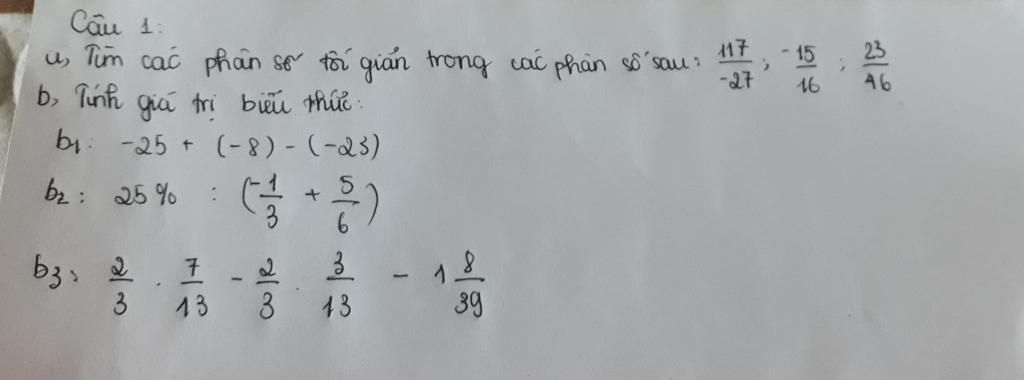 Câu 1:
a, Tìm các phân số tối giản trong các phân số sau: 117/-27; -15/16; 23/46
b, Tính giá trị biểu thức:
b1: -25 + (-8) - (-23)
b2: 25% : (-1/3 + 5/6)
b3, 2/3 . 7/13 - 2/3 . 3/13 - 1 8/39